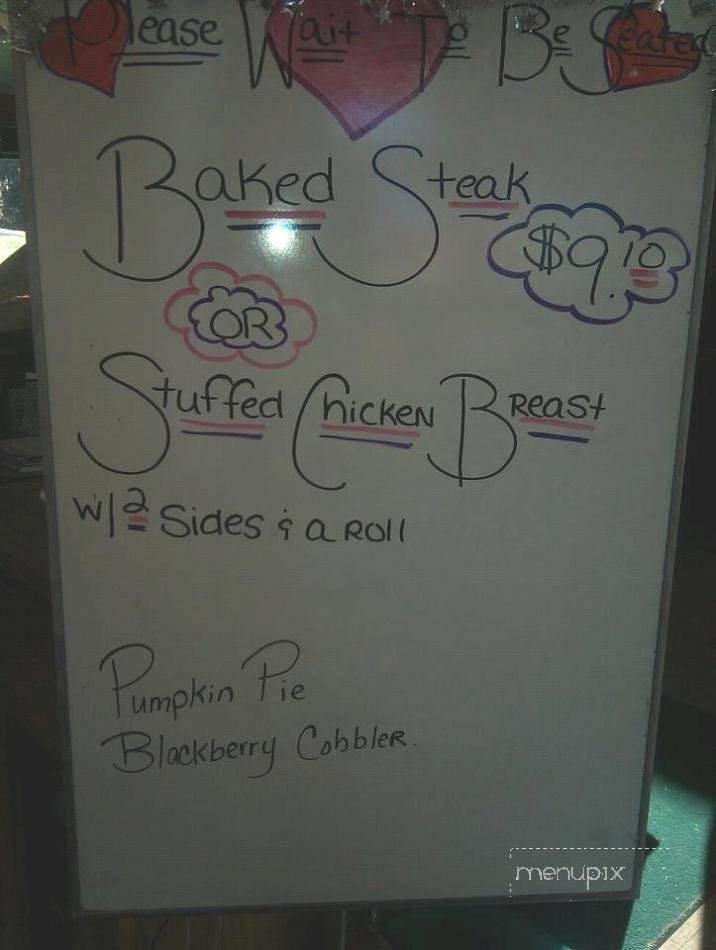 Please Wait To Be Seated
Baked Steak
$9.10
OR
Stuffed Chicken Breast
W/ 2 Sides & a Roll
Pumpkin Pie
Blackberry Cobbler
menupix